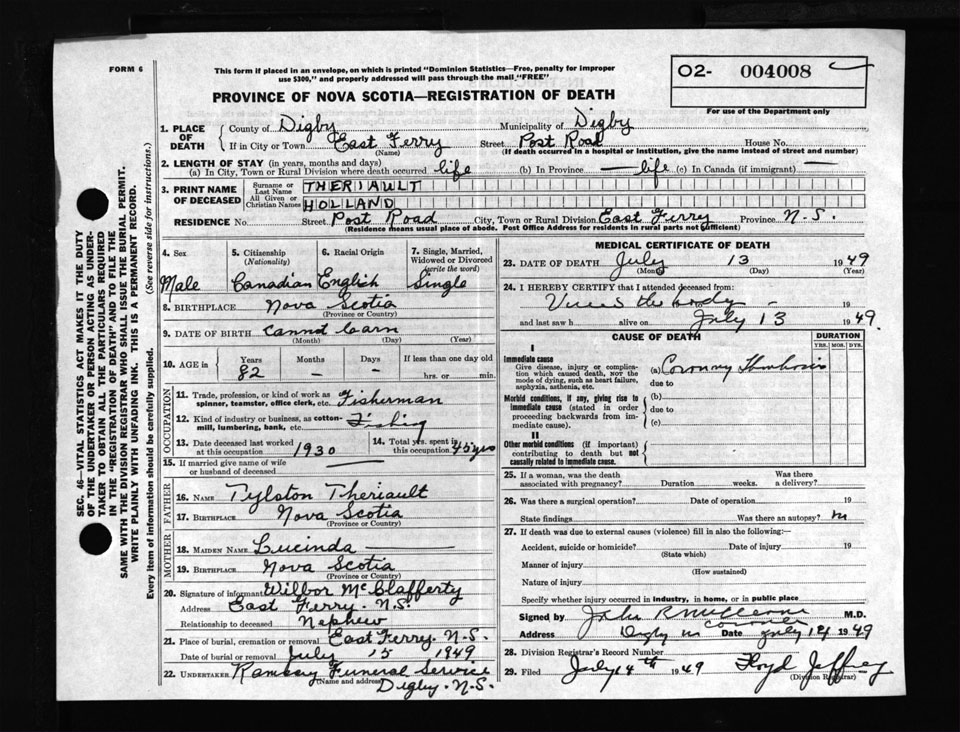 FORM 6
This form if placed in an envelope, on which is printed "Dominion Statistics—Free, penalty for improper
use $300," and properly addressed will pass through the mail "FREE"
O2- 004008
For use of the Department only
PROVINCE OF NOVA SCOTIA—REGISTRATION OF DEATH
SEC. 46—VITAL STATISTICS ACT MAKES IT THE DUTY
OF THE UNDERTAKER OR PERSON ACTING AS UNDER-
TAKER TO OBTAIN ALL THE PARTICULARS REQUIRED
IN THE "REGISTRATION OF DEATH" AND TO FILE THE
SAME WITH THE DIVISION REGISTRAR WHO SHALL ISSUE THE BURIAL PERMIT.
WRITE PLAINLY WITH UNFADING INK. THIS IS A PERMANENT RECORD.
Every item of information should be carefully supplied. (See reverse side for instructions.)
1. PLACE OF DEATH
County of Digby Municipality of Digby
If in City or Town East Ferry Street Post Road House No.
(Name) (If death occurred in a hospital or institution, give the name instead of street and number)
2. LENGTH OF STAY (in years, months and days)
(a) In City, Town or Rural Division where death occurred life (b) In Province life (c) In Canada (if immigrant) —
3. PRINT NAME OF DECEASED
Surname or Last Name THERIAULT
All Given or Christian Names HOLLAND
RESIDENCE No. Street Post Road City, Town or Rural Division East Ferry Province N.S.
(Residence means usual place of abode. Post Office Address for residents in rural parts not sufficient)
4. Sex 5. Citizenship (Nationality) 6. Racial Origin 7. Single, Married, Widowed or Divorced (write the word)
Male Canadian English Single
8. BIRTHPLACE Nova Scotia
(Province or Country)
9. DATE OF BIRTH cannot learn
(Month) (Day) (Year)
10. AGE in Years Months Days If less than one day old
82 — — hrs. or min.
OCCUPATION
11. Trade, profession, or kind of work as spinner, teamster, office clerk, etc. Fisherman
12. Kind of industry or business, as cotton-mill, lumbering, bank, etc. Fishing
13. Date deceased last worked at this occupation 1930 14. Total yrs. spent in this occupation 45 yrs
15. If married give name of wife or husband of deceased —
FATHER
16. NAME Tylston Theriault
17. BIRTHPLACE Nova Scotia
(Province or Country)
MOTHER
18. MAIDEN NAME Lucinda —
19. BIRTHPLACE Nova Scotia
(Province or Country)
20. Signature of informant Wilbor McClafferty
Address East Ferry. N.S.
Relationship to deceased Nephew
21. Place of burial, cremation or removal East Ferry. N.S.
Date of burial or removal July 15 1949
22. UNDERTAKER Ramsay Funeral Service
(Name and address) Digby. N.S.
MEDICAL CERTIFICATE OF DEATH
23. DATE OF DEATH July 13 1949
(Month) (Day) (Year)
24. I HEREBY CERTIFY that I attended deceased from:
the body - 19
and last saw h alive on July 13 1949.
CAUSE OF DEATH DURATION
YRS. MOS. DYS.
I
Immediate cause
Give disease, injury or complication which caused death, NOT the mode of dying, such as heart failure, asphyxia, asthenia, etc.
(a) Coronary Thrombosis
due to
Morbid conditions, if any, giving rise to immediate cause (stated in order proceeding backwards from immediate cause).
(b)
due to
(c)
II
Other morbid conditions (if important) contributing to death but not causally related to immediate cause.
25. If a woman, was the death associated with pregnancy? Duration weeks. Was there a delivery?
26. Was there a surgical operation? Date of operation 19
State findings Was there an autopsy?
27. If death was due to external causes (violence) fill in also the following:—
Accident, suicide or homicide? Date of injury 19
(State which)
Manner of injury
(How sustained)
Nature of injury
Specify whether injury occurred in industry, in home, or in public place
Signed by M.D.
coroner
Address Digby Date July 14 1949
28. Division Registrar's Record Number
29. Filed July 14th 1949 Floyd Jeffrey
(Division Registrar)